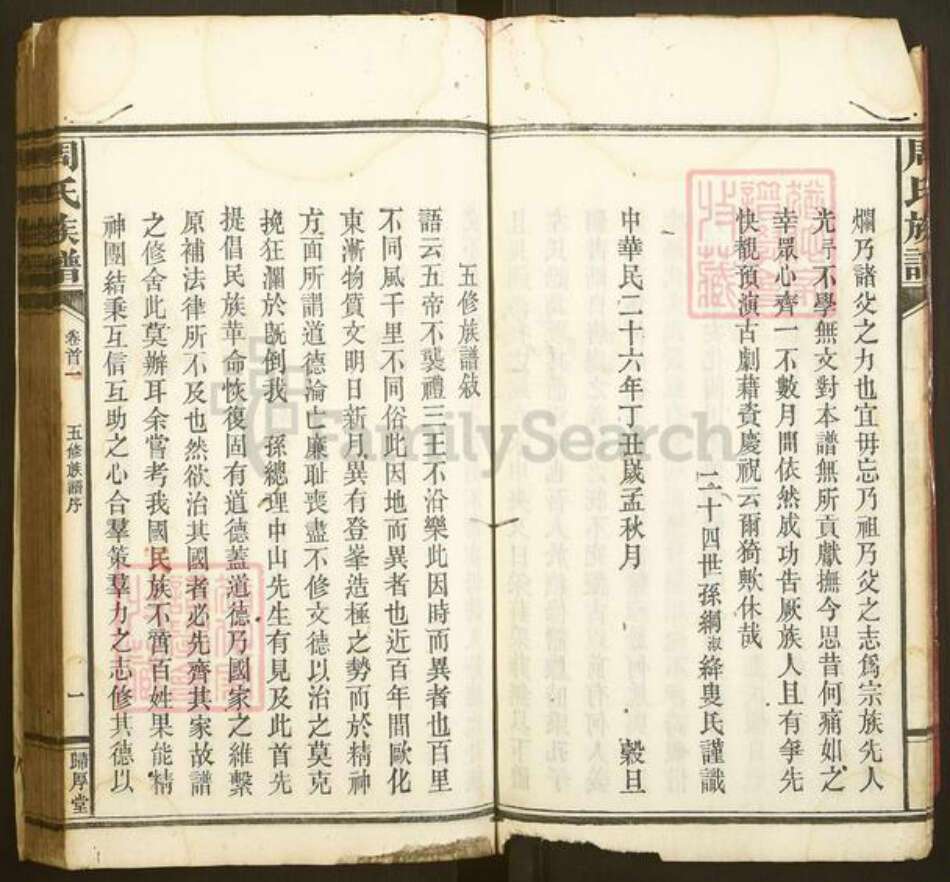 周氏族譜
爛乃諸父之力也宜毋忘乃祖乃父之志爲宗族先人
光予不學無文對本譜無所貢獻撫今思昔何痛如之
幸眾心齊一不數月間依然成功告厥族人且有爭先
快覩預演古劇藉資慶祝云爾猗歟休哉
二十四世孫綱淑絳叟氏謹識
中華民二十六年丁丑歲孟秋月 穀旦
五修族譜敍
語云五帝不襲禮三王不沿樂此因時而異者也百里
不同風千里不同俗此因地而異者也近百年間歐化
東漸物質文明日新月異有登峯造極之勢而於精神
方面所謂道德淪亡廉耻喪盡不修文德以治之莫克
挽狂瀾於旣倒我 孫總理中山先生有見及此首先
提倡民族革命恢復固有道德蓋道德乃國家之維繫
原補法律所不及也然欲治其國者必先齊其家故譜
之修舍此莫辦耳余嘗考我國民族不啻百姓果能精
神團結秉互信互助之心合羣策羣力之志修其德以
周氏族譜 卷首一 五修族譜序 一 歸厚堂
FamilySearch